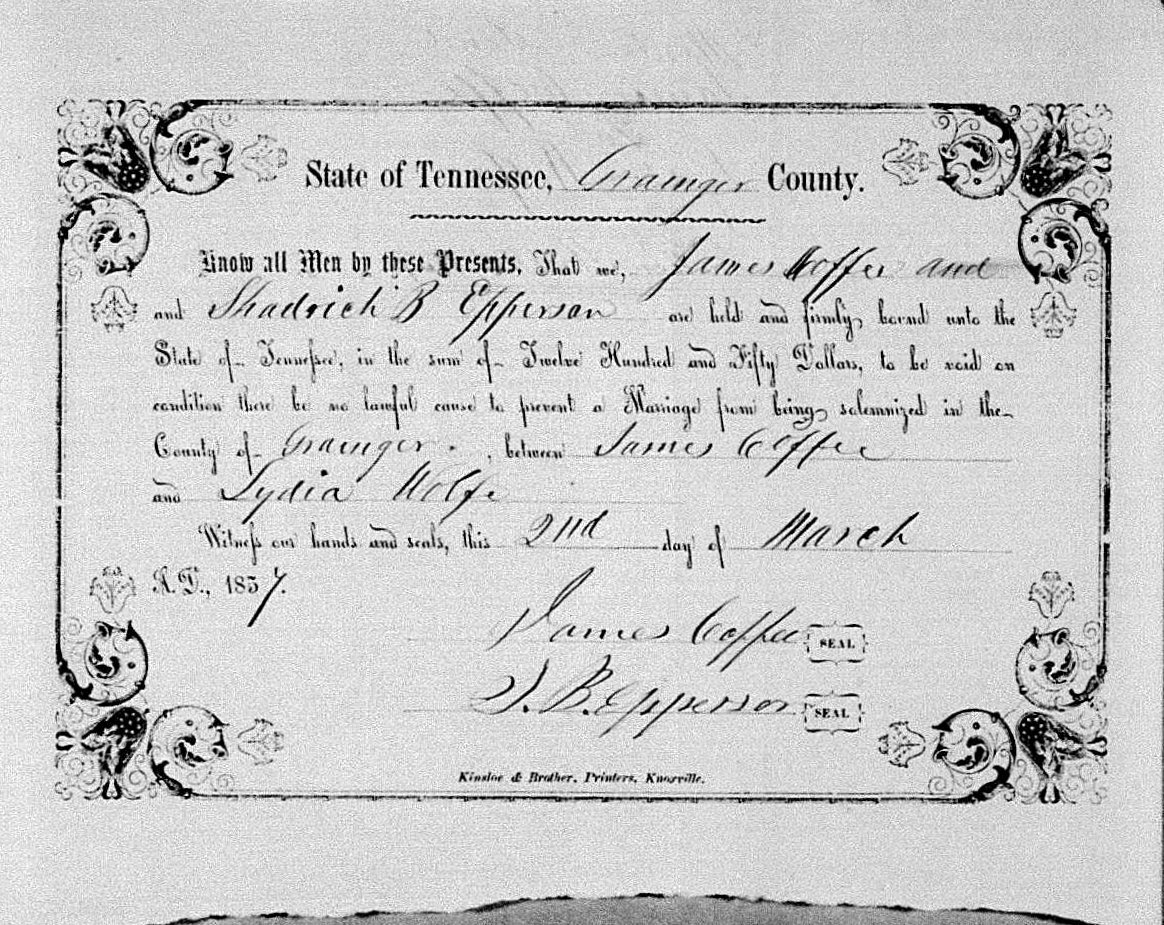 State of Tennessee, Grainger County.
Know all Men by these Presents, That we, James Coffee and
and Shadrich B Epperson are held and firmly bound unto the
State of Tennessee, in the sum of Twelve Hundred and Fifty Dollars, to be void on
condition there be no lawful cause to prevent a Marriage from being solemnized in the
County of Grainger, between James Coffee
and Lydia Wolfe
Witness our hands and seals, this 2nd day of March
A. D., 1857.
James Coffee SEAL
S. B. Epperson SEAL
Kinsloe & Brother, Printers, Knoxville.